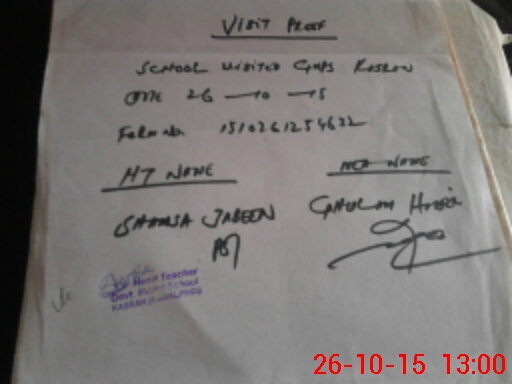 VISIT PROOF
SCHOOL VISITED GMPS KASRAN
DATE 26 — 10 — 15
Form No 1510261254622
HT NAME
MEA NAME
SHAMSA JABEEN
GHULAM
Head Teacher
Govt School
KASRAN
26-10-15 13:00